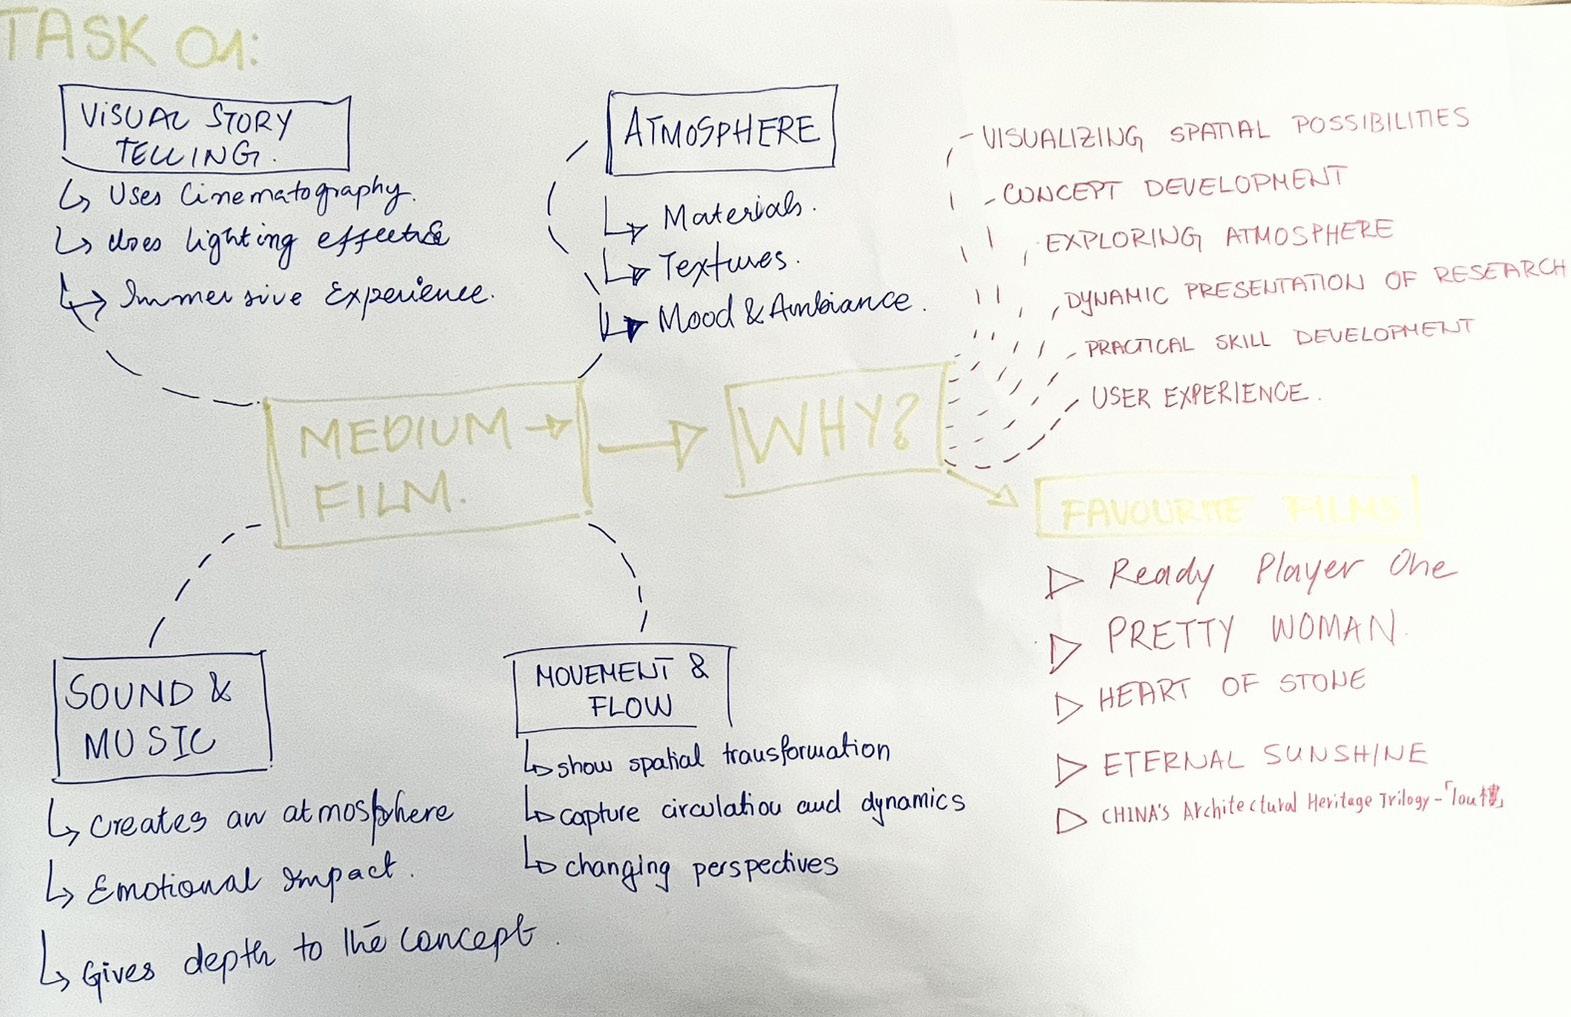 TASK 01:
VISUAL STORY
TELLING.
Uses Cinematography.
Uses lighting effects
Immersive Experience.
ATMOSPHERE
Materials.
Textures.
Mood & Ambiance.
MEDIUM →
FILM.
WHY?
VISUALIZING SPATIAL POSSIBILITIES
CONCEPT DEVELOPMENT
EXPLORING ATMOSPHERE
DYNAMIC PRESENTATION OF RESEARCH
PRACTICAL SKILL DEVELOPMENT
USER EXPERIENCE.
FAVOURITE FILMS
Ready Player One
PRETTY WOMAN.
HEART OF STONE
ETERNAL SUNSHINE
CHINA'S Architectural Heritage Trilogy-「lou樓」
SOUND &
MUSIC
creates an atmosphere
Emotional Impact.
Gives depth to the concept.
MOVEMENT &
FLOW
show spatial transformation
capture circulation and dynamics
changing perspectives